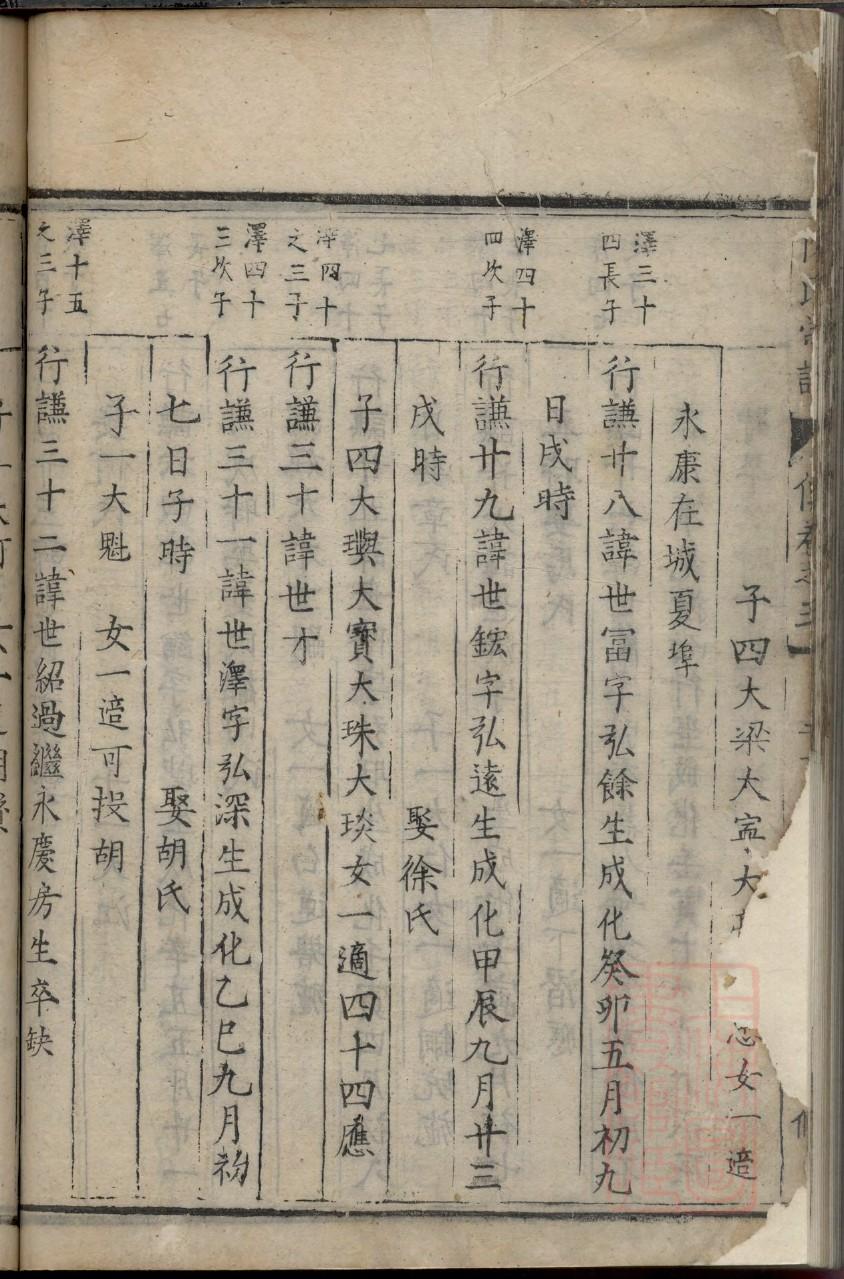 子四大梁大寍大 女一適
永康在城夏埠
澤三十
四長子
行謙廿八諱世冨字弘餘生成化癸卯五月初九
日戌時
澤四十
四次子
行謙廿九諱世鋐字弘遠生成化甲辰九月廿三
戌時 娶徐氏
子四大璵大寳大珠大琰女一適四十四應
澤四十
之三子
行謙三十諱世才
澤四十
三次子
行謙三十一諱世澤字弘深生成化乙巳九月初
七日子時 娶胡氏
子一大魁 女一適可投胡
澤十五
之三子
行謙三十二諱世紹過繼永慶房生卒缺